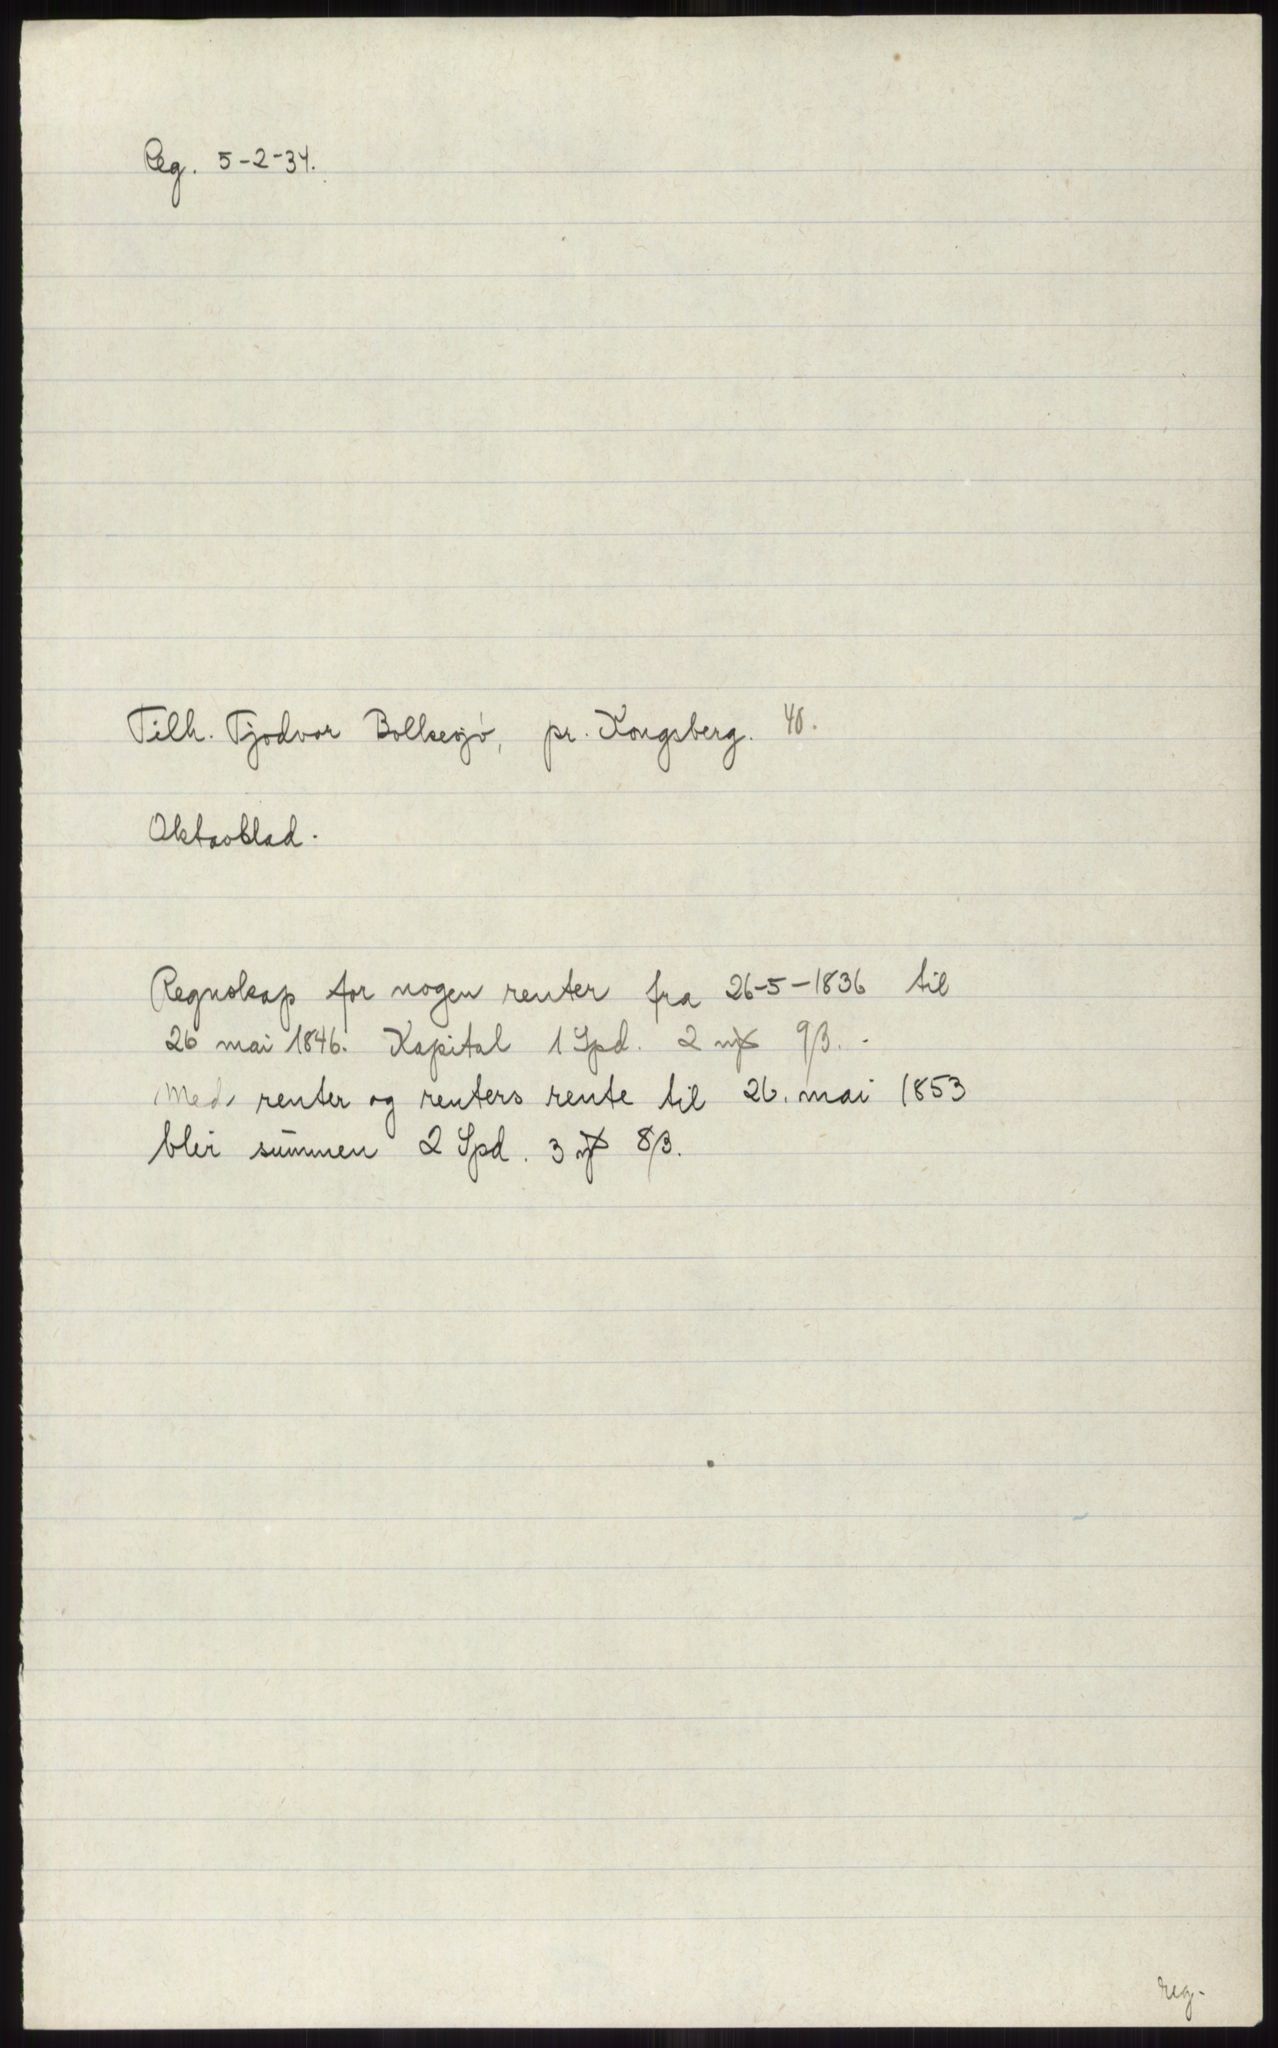 Reg. 5-2-34.
Tilh. Tjodvor Bolkesjø, pr. Kongsberg. 40.
Oktavblad.
Regnskap for nogen renter fra 26-5-1836 til
26 mai 1846. Kapital 1 Spd. 2 mꝭ 9β. -
Med renter og renters rente til 26. mai 1853
blir summen 2 Spd. 3 mꝭ 8β.
reg.